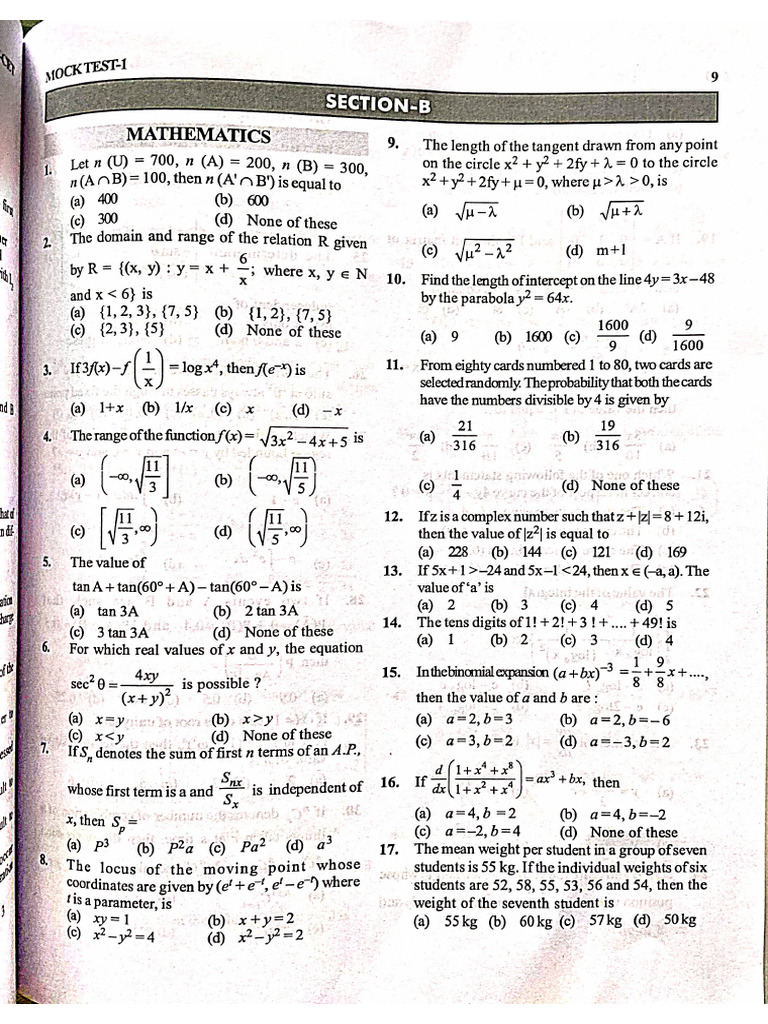 MOCK TEST-1
9
SECTION-B
MATHEMATICS
1. Let n (U) = 700, n (A) = 200, n (B) = 300,
n (A ∩ B) = 100, then n (A' ∩ B') is equal to
(a) 400 (b) 600
(c) 300 (d) None of these
2. The domain and range of the relation R given
by R = {(x, y) : y = x + 6/x; where x, y ∈ N
and x < 6} is
(a) {1, 2, 3}, {7, 5} (b) {1, 2}, {7, 5}
(c) {2, 3}, {5} (d) None of these
3. If 3f(x) – f(1/x) = log x⁴, then f(e⁻ˣ) is
(a) 1+x (b) 1/x (c) x (d) – x
4. The range of the function f (x) = √(3x² – 4x + 5) is
(a) (–∞, √(11/3)] (b) (–∞, √(11/5))
(c) [√(11/3), ∞) (d) (√(11/5), ∞)
5. The value of
tan A + tan(60° + A) – tan(60° – A) is
(a) tan 3A (b) 2 tan 3A
(c) 3 tan 3A (d) None of these
6. For which real values of x and y, the equation
sec² θ = 4xy/(x + y)² is possible ?
(a) x = y (b) x > y
(c) x < y (d) None of these
7. If Sₙ denotes the sum of first n terms of an A.P.,
whose first term is a and Sₙₓ/Sₓ is independent of
x, then Sₚ =
(a) P³ (b) P²a (c) Pa² (d) a³
8. The locus of the moving point whose
coordinates are given by (eᵗ + e⁻ᵗ, eᵗ – e⁻ᵗ) where
t is a parameter, is
(a) xy = 1 (b) x + y = 2
(c) x² – y² = 4 (d) x² – y² = 2
9. The length of the tangent drawn from any point
on the circle x² + y² + 2fy + λ = 0 to the circle
x² + y² + 2fy + μ = 0, where μ > λ > 0, is
(a) √(μ – λ) (b) √(μ + λ)
(c) √(μ² – λ²) (d) m + l
10. Find the length of intercept on the line 4y = 3x – 48
by the parabola y² = 64x.
(a) 9 (b) 1600 (c) 1600/9 (d) 9/1600
11. From eighty cards numbered 1 to 80, two cards are
selected randomly. The probability that both the cards
have the numbers divisible by 4 is given by
(a) 21/316 (b) 19/316
(c) 1/4 (d) None of these
12. If z is a complex number such that z + |z| = 8 + 12i,
then the value of |z²| is equal to
(a) 228 (b) 144 (c) 121 (d) 169
13. If 5x + 1 > –24 and 5x – 1 < 24, then x ∈ (–a, a). The
value of ‘a’ is
(a) 2 (b) 3 (c) 4 (d) 5
14. The tens digits of 1! + 2! + 3 ! + .... + 49! is
(a) 1 (b) 2 (c) 3 (d) 4
15. In the binomial expansion (a + bx)⁻³ = 1/8 + 9/8 x + ....,
then the value of a and b are :
(a) a = 2, b = 3 (b) a = 2, b = – 6
(c) a = 3, b = 2 (d) a = – 3, b = 2
16. If d/dx ((1 + x⁴ + x⁸)/(1 + x² + x⁴)) = ax³ + bx, then
(a) a = 4, b = 2 (b) a = 4, b = –2
(c) a = –2, b = 4 (d) None of these
17. The mean weight per student in a group of seven
students is 55 kg. If the individual weights of six
students are 52, 58, 55, 53, 56 and 54, then the
weight of the seventh student is
(a) 55 kg (b) 60 kg (c) 57 kg (d) 50 kg